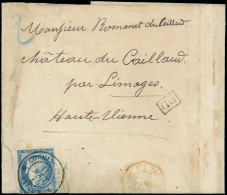 2
Monsieur Romanet du Caillaud
château du Caillaud
par Limoges
Haute Vienne
PD